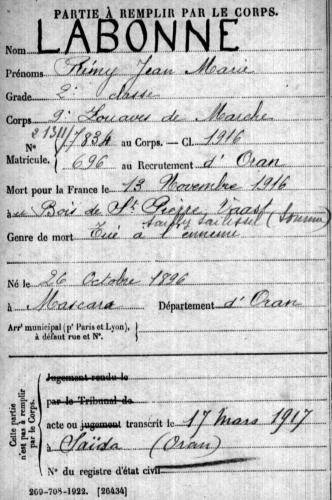 PARTIE À REMPLIR PAR LE CORPS.
Nom LABONNE
Prénoms Rémy Jean Marie
Grade 2e classe
Corps 9e Zouaves de Marche
N° 21311/7834 au Corps. — Cl. 1916
Matricule. 696 au Recrutement d'Oran
Mort pour la France le 13 Novembre 1916
au Bois de St Pierre Vaast
Sailly Saillisel (Somme)
Genre de mort Tué à l'ennemi
Né le 26 Octobre 1896
à Mascara Département d'Oran
Arrt municipal (pr Paris et Lyon),
à défaut rue et N°.
Cette partie
n'est pas à remplir
par le Corps.
Jugement rendu le
par le Tribunal de
acte ou jugement transcrit le 17 mars 1917
à Saïda (Oran)
N° du registre d'état civil
269-708-1922. [26434]